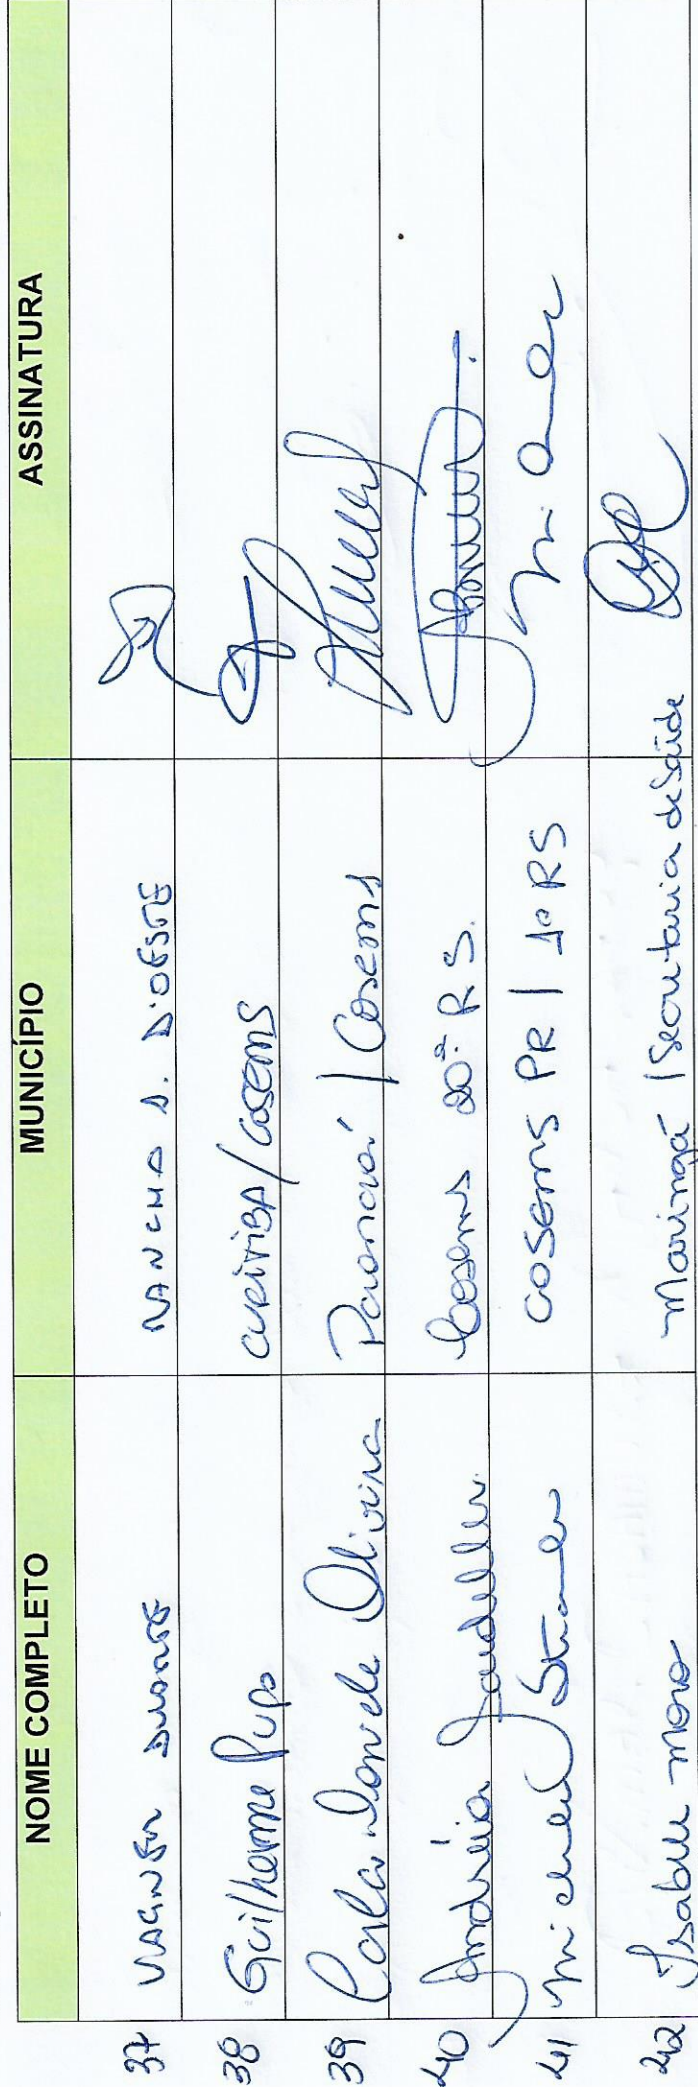 NOME COMPLETO MUNICÍPIO ASSINATURA
37 VAGNER DUARTE RANCHO A. D'OESTE
38 Guilherme Pupo CURITIBA/COSEMS
39 Carla Daniele Oliveira Paranavaí | Cosems
40 Andréia Cosems 20ª R S.
41 COSEMS PR | 1ª RS
42 Isabele moro Maringá | Secretaria de Saúde